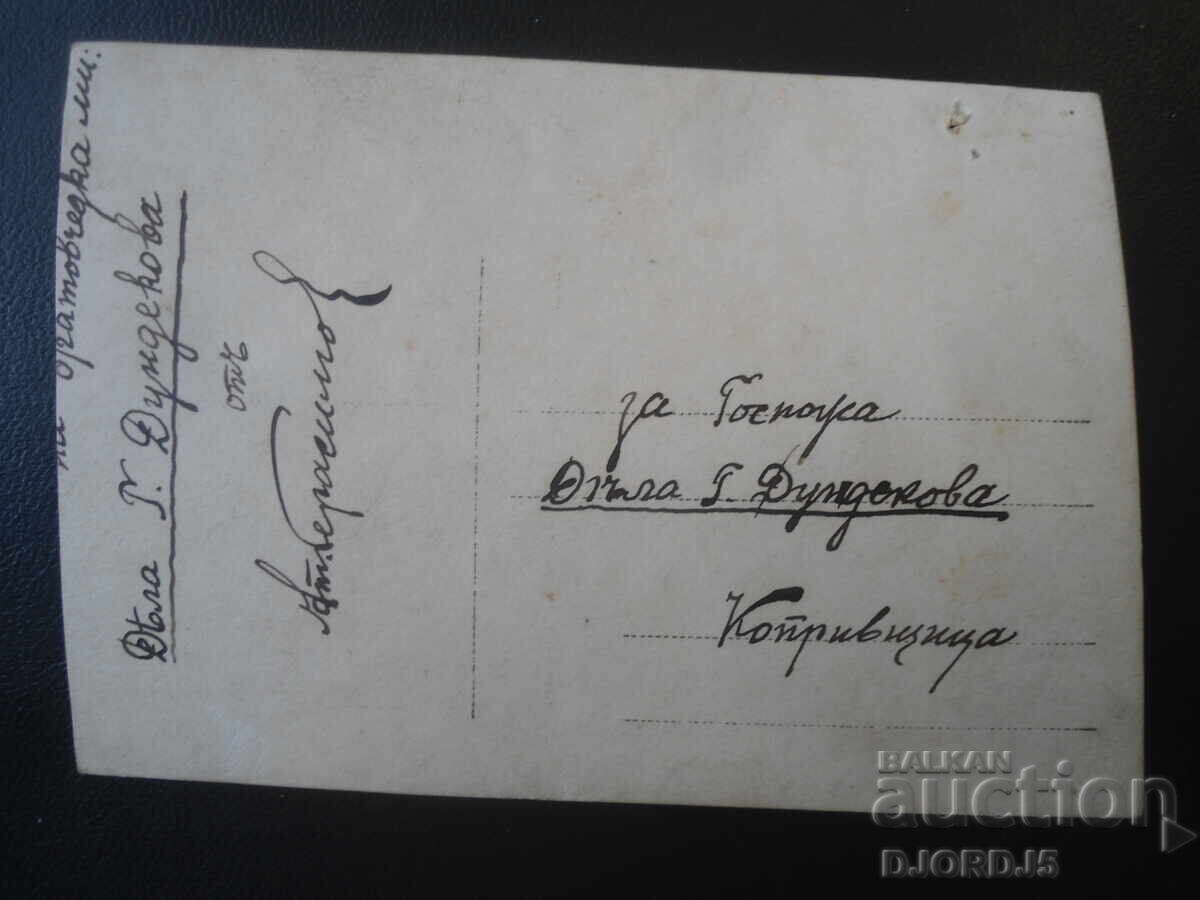 на братовчедка ми:
Дѣла Г. Дундекова
отъ
за Госпожа
Дѣла Г. Дундекова
Копривщица
BALKAN
auction
DJORDJ5